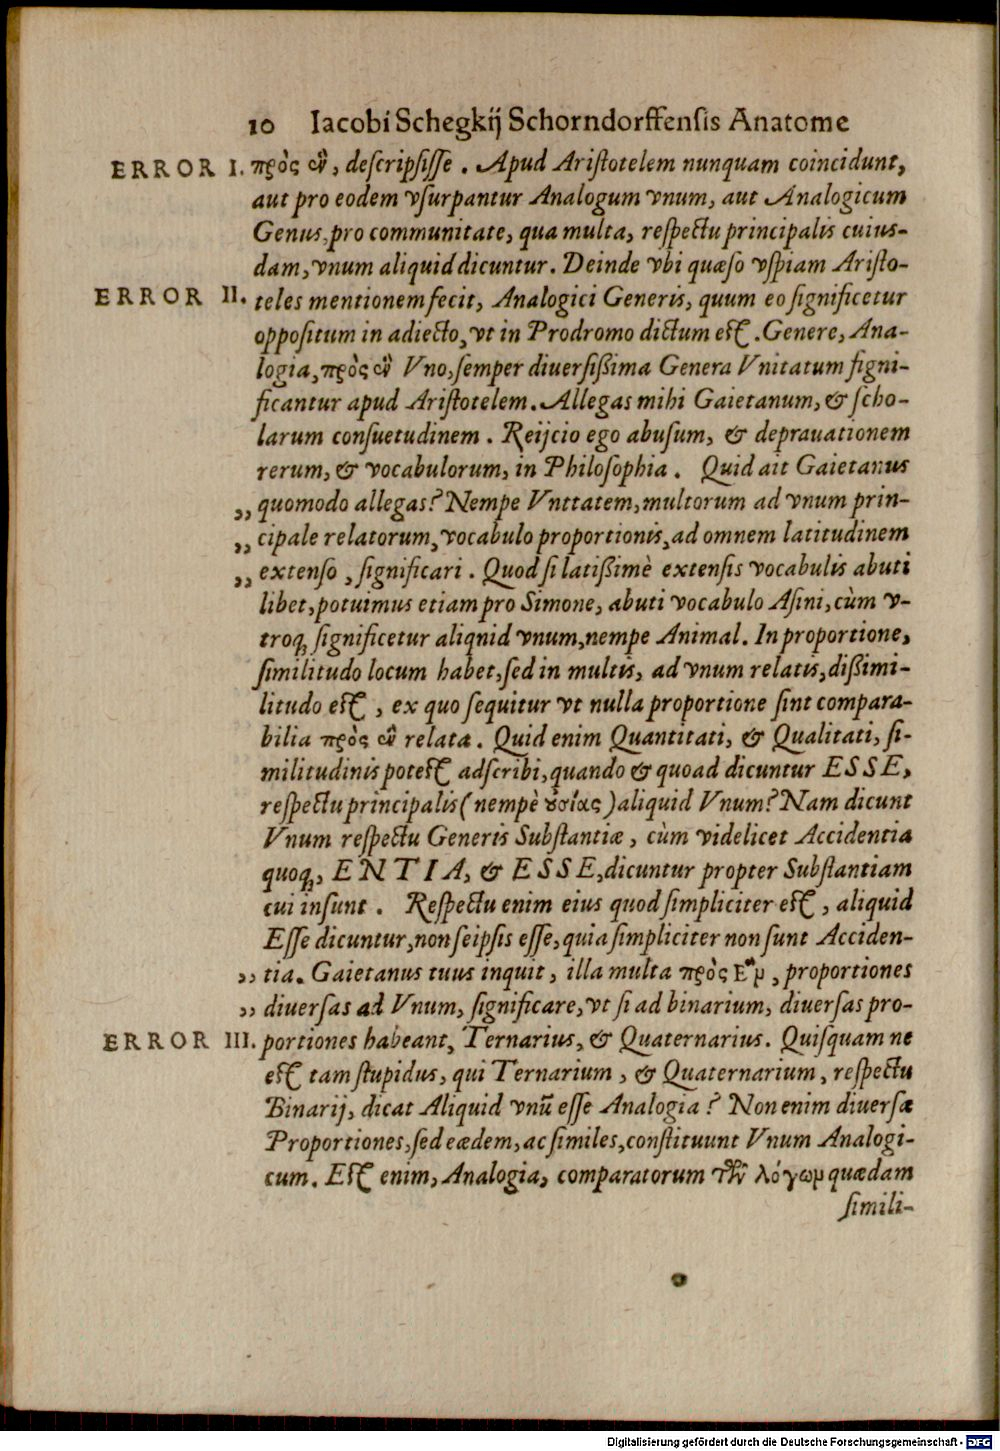 10 Iacobi Schegkij Schorndorffensis Anatome
ERROR I. πρὸς ἓν, descripsisse. Apud Aristotelem nunquam coincidunt,
aut pro eodem vsurpantur Analogum vnum, aut Analogicum
Genus, pro communitate, qua multa, respectu principalis cuius-
dam, vnum aliquid dicuntur. Deinde vbi quæso vspiam Aristo-
ERROR II. teles mentionem fecit, Analogici Generis, quum eo significetur
oppositum in adiecto, vt in Prodromo dictum est. Genere, Ana-
logia, πρὸς ἓν Vno, semper diuersißima Genera Vnitatum signi-
ficantur apud Aristotelem. Allegas mihi Gaietanum, & scho-
larum consuetudinem. Reijcio ego abusum, & deprauationem
rerum, & vocabulorum, in Philosophia. Quid ait Gaietanus
,, quomodo allegas? Nempe Vnttatem, multorum ad vnum prin-
,, cipale relatorum, vocabulo proportionis, ad omnem latitudinem
,, extenso, significari. Quod si latißimè extensis vocabulis abuti
libet, potuimus etiam pro Simone, abuti vocabulo Asini, cùm v-
troq́; significetur aliqnid vnum, nempe Animal. In proportione,
similitudo locum habet, sed in multis, ad vnum relatis, dißimi-
litudo est, ex quo sequitur vt nulla proportione sint compara-
bilia πρὸς ἓν relata. Quid enim Quantitati, & Qualitati, si-
militudinis potest adscribi, quando & quoad dicuntur ESSE,
respectu principalis (nempè ȣ̓σίας) aliquid Vnum? Nam dicunt
Vnum respectu Generis Substantiæ, cùm videlicet Accidentia
quoq́;, ENTIA, & ESSE, dicuntur propter Substantiam
cui insunt. Respectu enim eius quod simpliciter est, aliquid
Esse dicuntur, non seipsis esse, quia simpliciter non sunt Acciden-
,, tia. Gaietanus tuus inquit, illa multa πρὸς Ἓν, proportiones
,, diuersas ad Vnum, significare, vt si ad binarium, diuersas pro-
ERROR III. portiones habeant, Ternarius, & Quaternarius. Quisquam ne
est tam stupidus, qui Ternarium, & Quaternarium, respectu
Binarij, dicat Aliquid vnū esse Analogia? Non enim diuersæ
Proportiones, sed eædem, ac similes, constituunt Vnum Analogi-
cum. Est enim, Analogia, comparatorum τῶν λόγων quædam
simili-
Digitalisierung gefördert durch die Deutsche Forschungsgemeinschaft - DFG